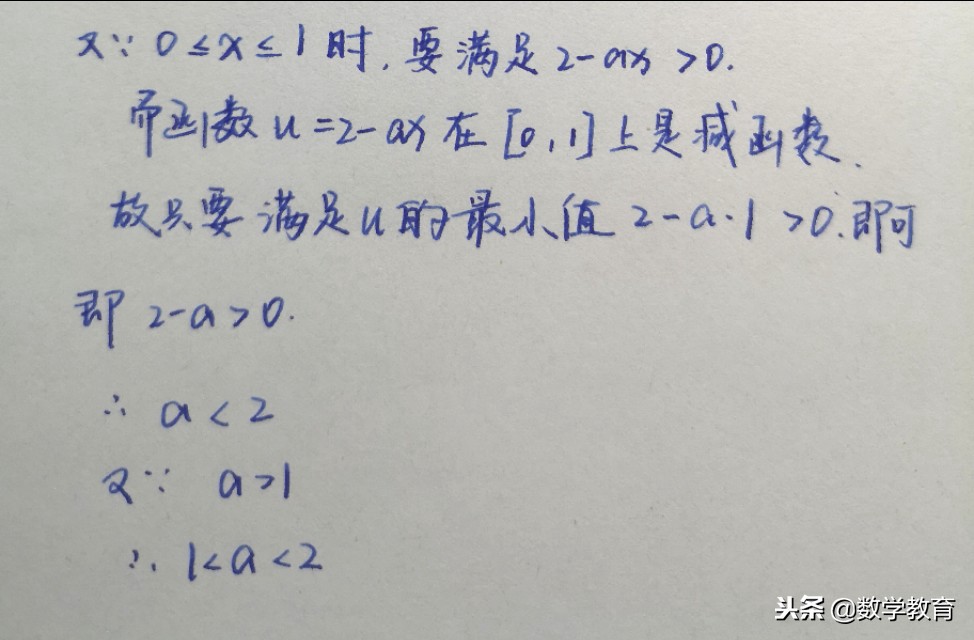 又∵ 0≤x≤1时,要满足 2-ax>0.
而函数 u=2-ax 在 [0,1] 上是减函数.
故只要满足 u 的最小值 2-a·1>0.即可
即 2-a>0.
∴ a<2
又∵ a>1
∴ 1<a<2
头条 @数学教育